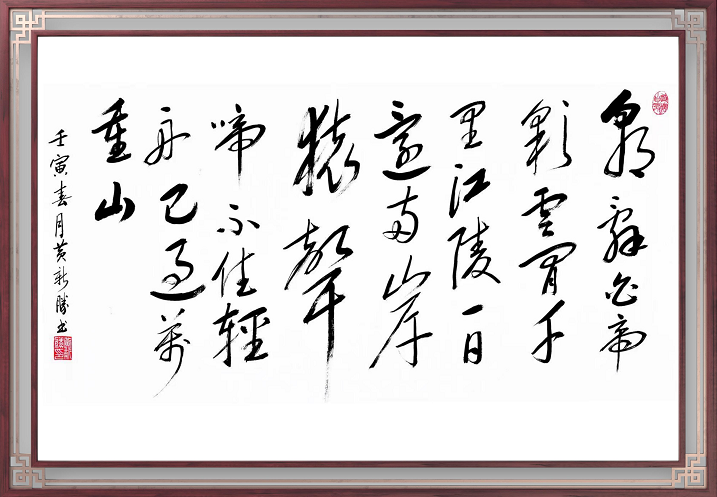 朝辭白帝
彩雲間千
里江陵一日
還兩岸
猿聲
啼不住輕
舟已過萬
重山
壬寅春月黄新勝书